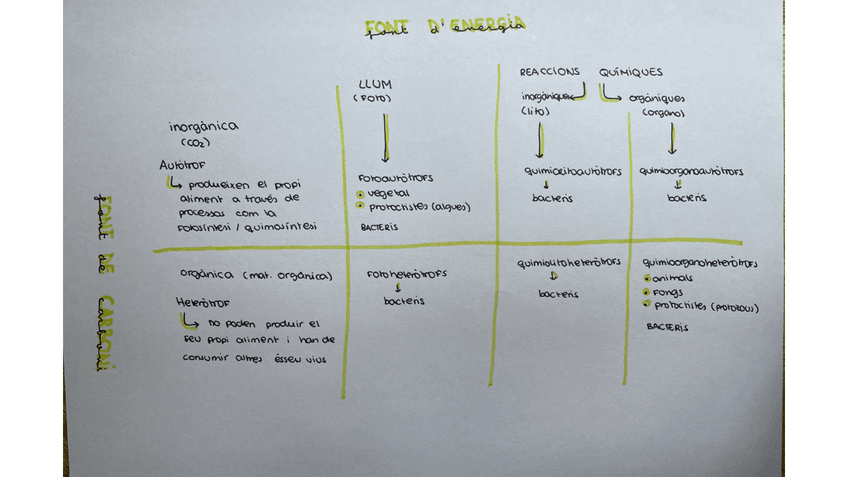 FONT D'ENERGIA
font d'energia
FONT DE CARBONI
font de carboni
LLUM
(FOTO)
REACCIONS QUÍMIQUES
inorgàniques
(lito)
orgàniques
(organo)
inorgànica
(CO₂)
AUTÒTROF
produeixen el propi
aliment a través de
processos com la
fotosíntesi / quimosíntesi
FOTOAUTÒTROFS
vegetal
protoctistes (algues)
BACTERIS
quimiolitoautòtrofs
bacteris
quimioorganoautòtrofs
bacteris
orgànica (mat. orgànica)
Heteròtrof
no poden produir el
seu propi aliment i han de
consumir altres éssers vius
Fotoheteròtrofs
bacteris
quimiolitoheteròtrofs
bacteris
quimioorganoheteròtrofs
animals
fongs
protoctistes (protozous)
BACTERIS